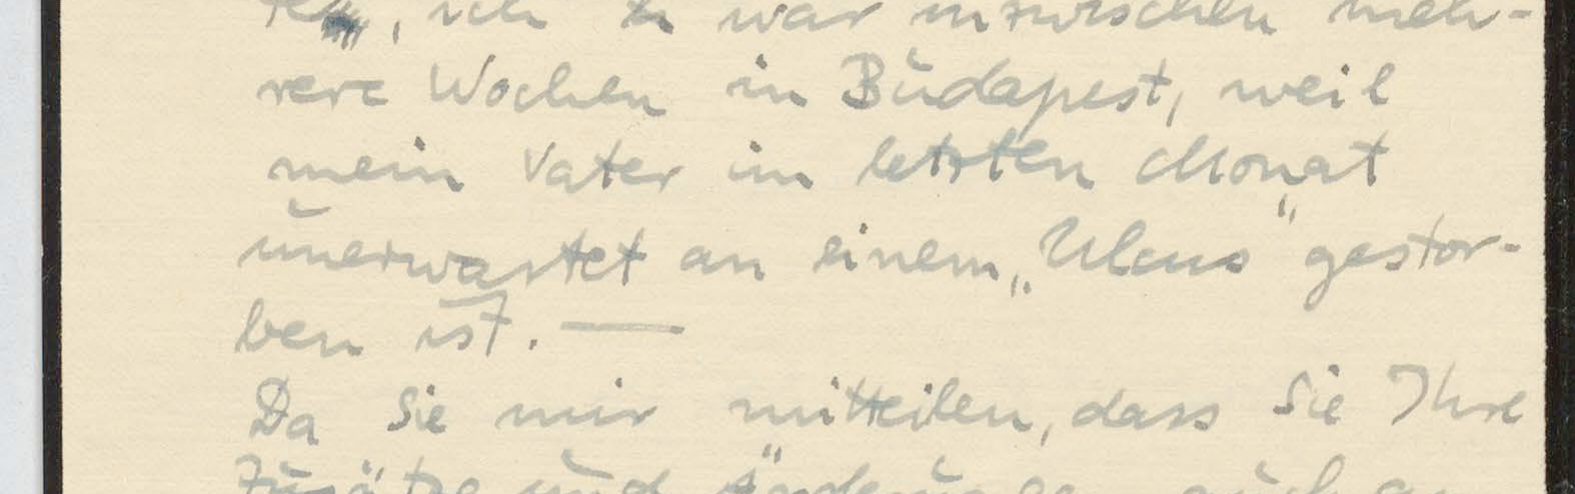 ich war inzwischen meh-
rere Wochen in Budapest, weil
mein Vater im letzten Monat
unerwartet an einem „Ulcus“ gestor-
ben ist. —
Da Sie mir mitteilen, dass Sie Ihre
Zusätze und Änderungen auch